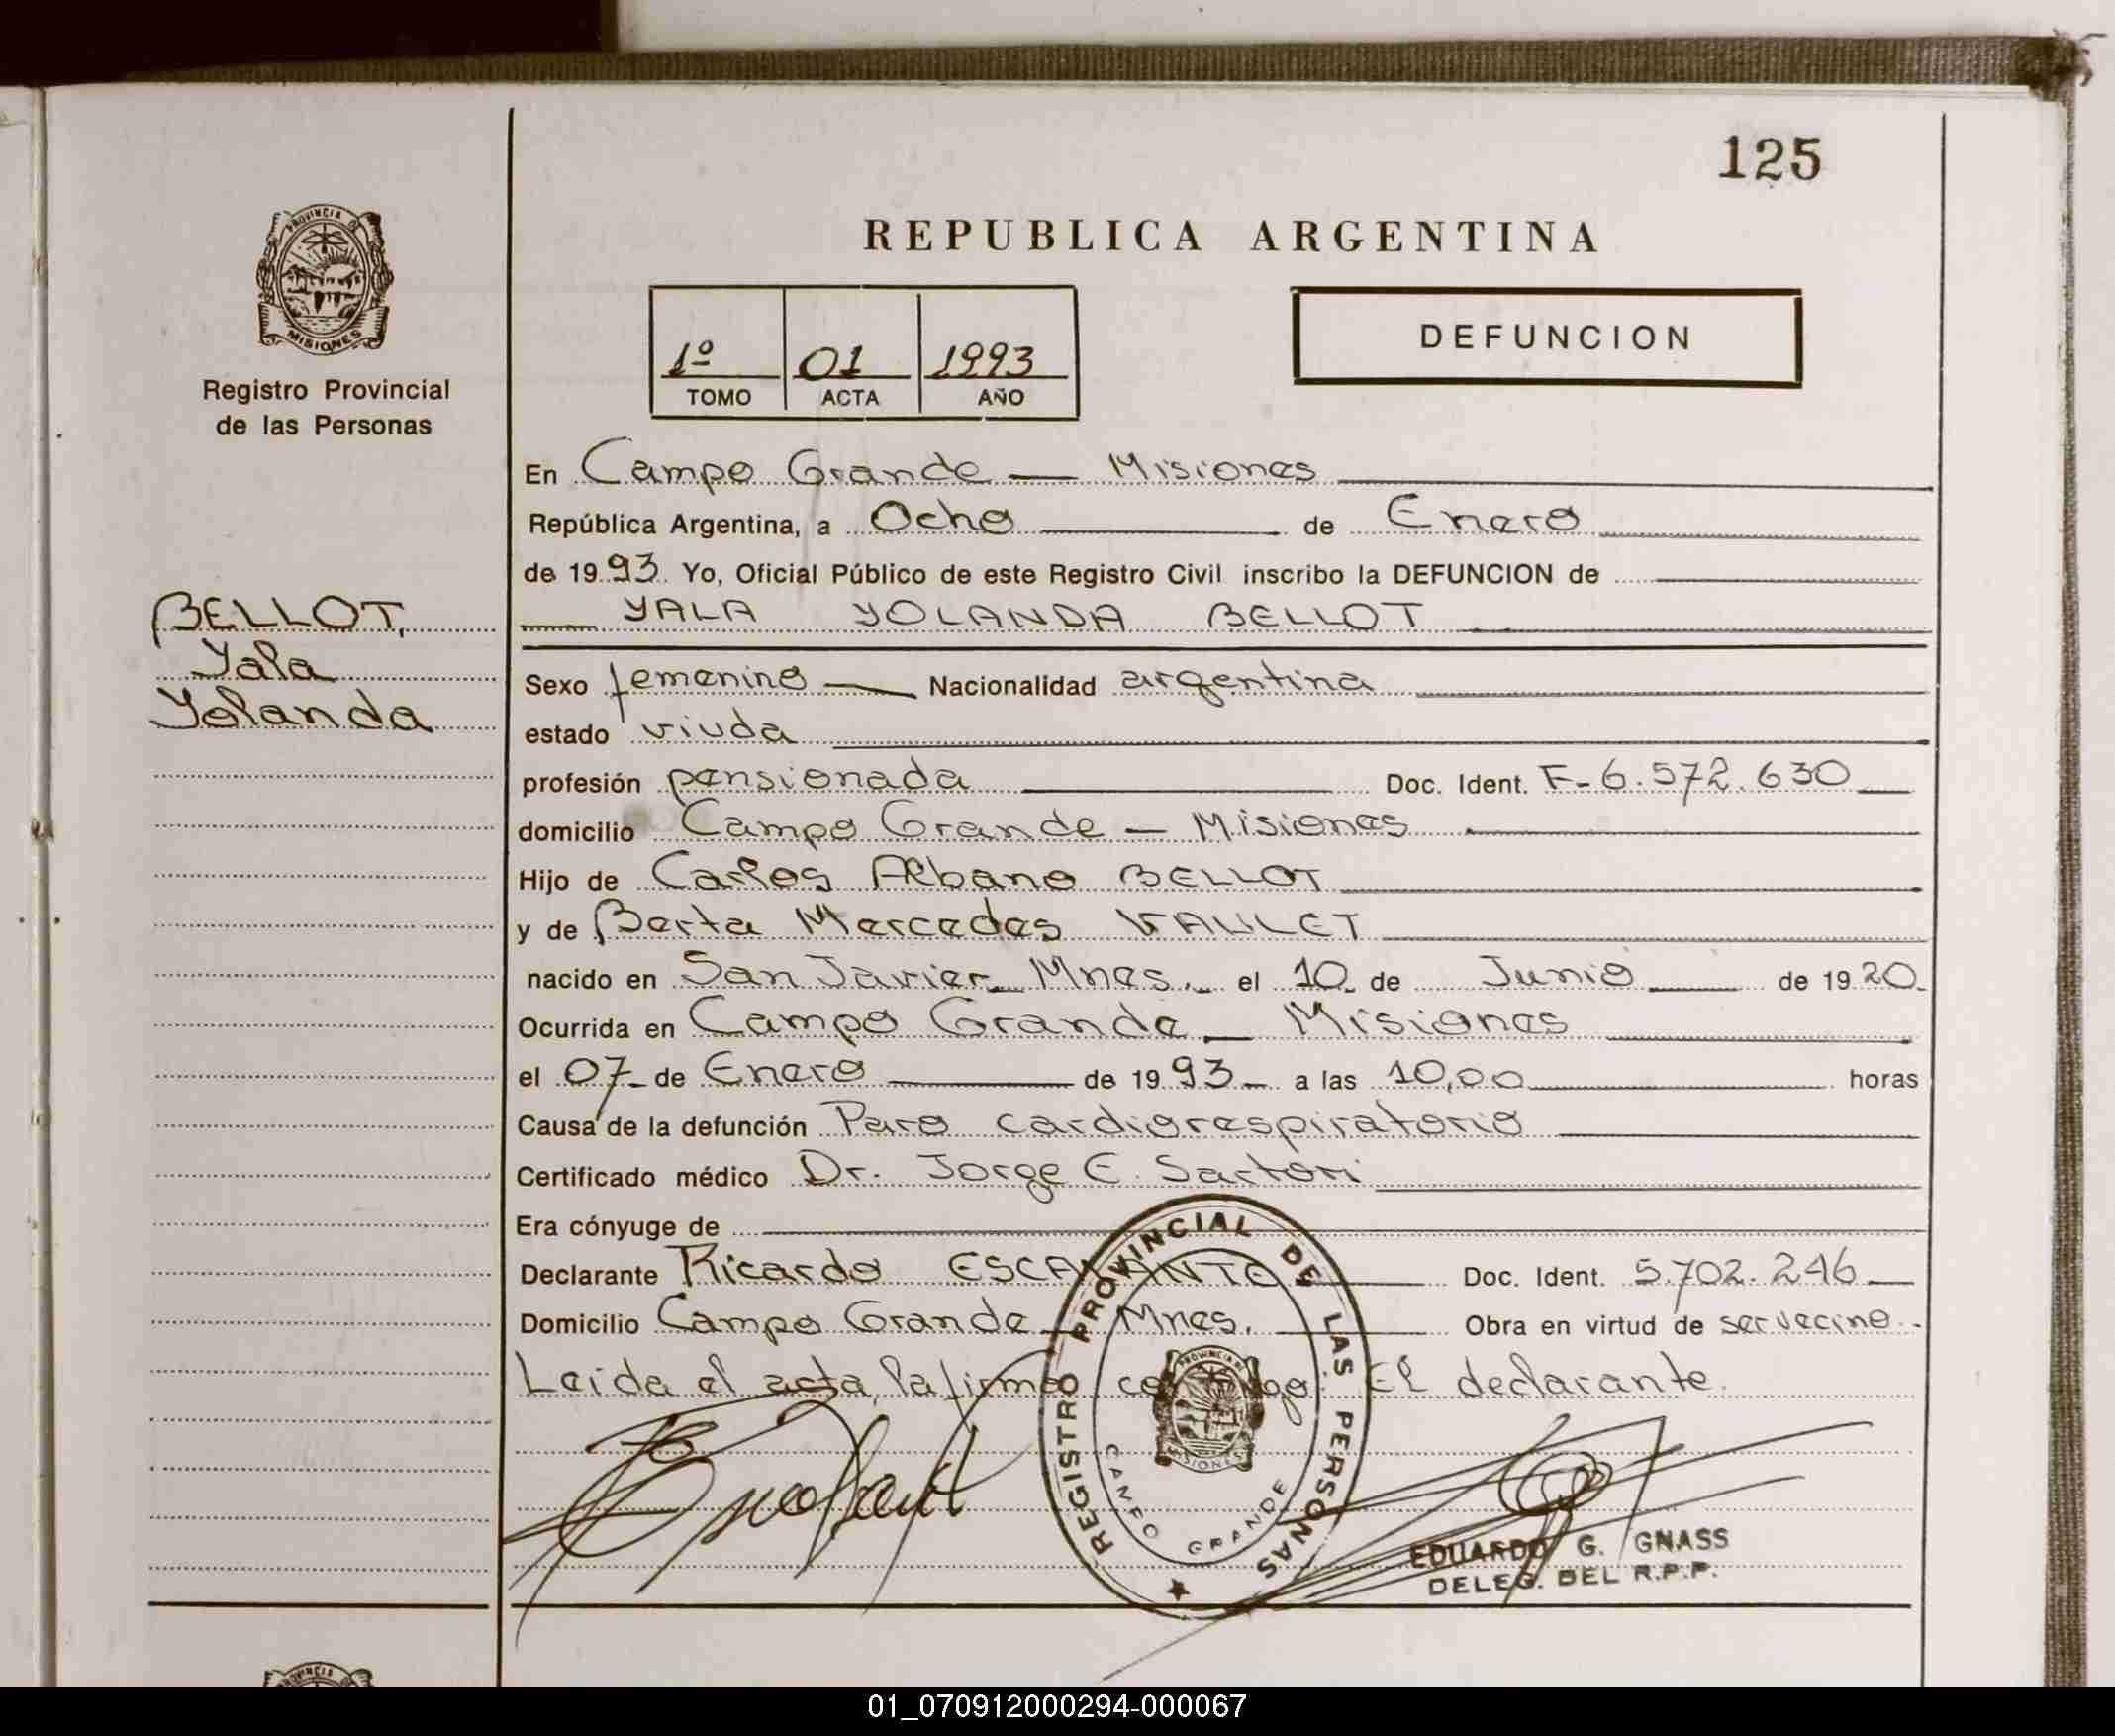 125
PROVINCIA DE
MISIONES
Registro Provincial
de las Personas
REPUBLICA ARGENTINA
1º 01 1993
TOMO ACTA AÑO
DEFUNCION
En Campo Grande — Misiones
República Argentina, a Ocho de Enero
de 1993. Yo, Oficial Público de este Registro Civil inscribo la DEFUNCION de
YALA YOLANDA BELLOT
BELLOT,
Yala
Yolanda
Sexo femenino — Nacionalidad argentina
estado viuda
profesión pensionada Doc. Ident. F-6.572.630
domicilio Campo Grande — Misiones
Hijo de Carlos Albano BELLOT
y de Berta Mercedes
nacido en San Javier Mnes. el 10 de Junio de 1920
Ocurrida en Campo Grande — Misiones
el 07 de Enero de 1993 a las 10,00 horas
Causa de la defunción Paro cardiorespiratorio
Certificado médico Dr. Jorge E. Sartori
Era cónyuge de
Declarante Ricardo ESCALANTE Doc. Ident. 5.702.246
Domicilio Campo Grande — Mnes. Obra en virtud de ser vecino.-
Leida el acta, la firma conmigo: El declarante.
REGISTRO PROVINCIAL DE LAS PERSONAS
CAMPO GRANDE
PROVINCIA DE
MISIONES
EDUARDO G. GNASS
DELEG. DEL R.P.P.
PROVINCIA
01_070912000294-000067